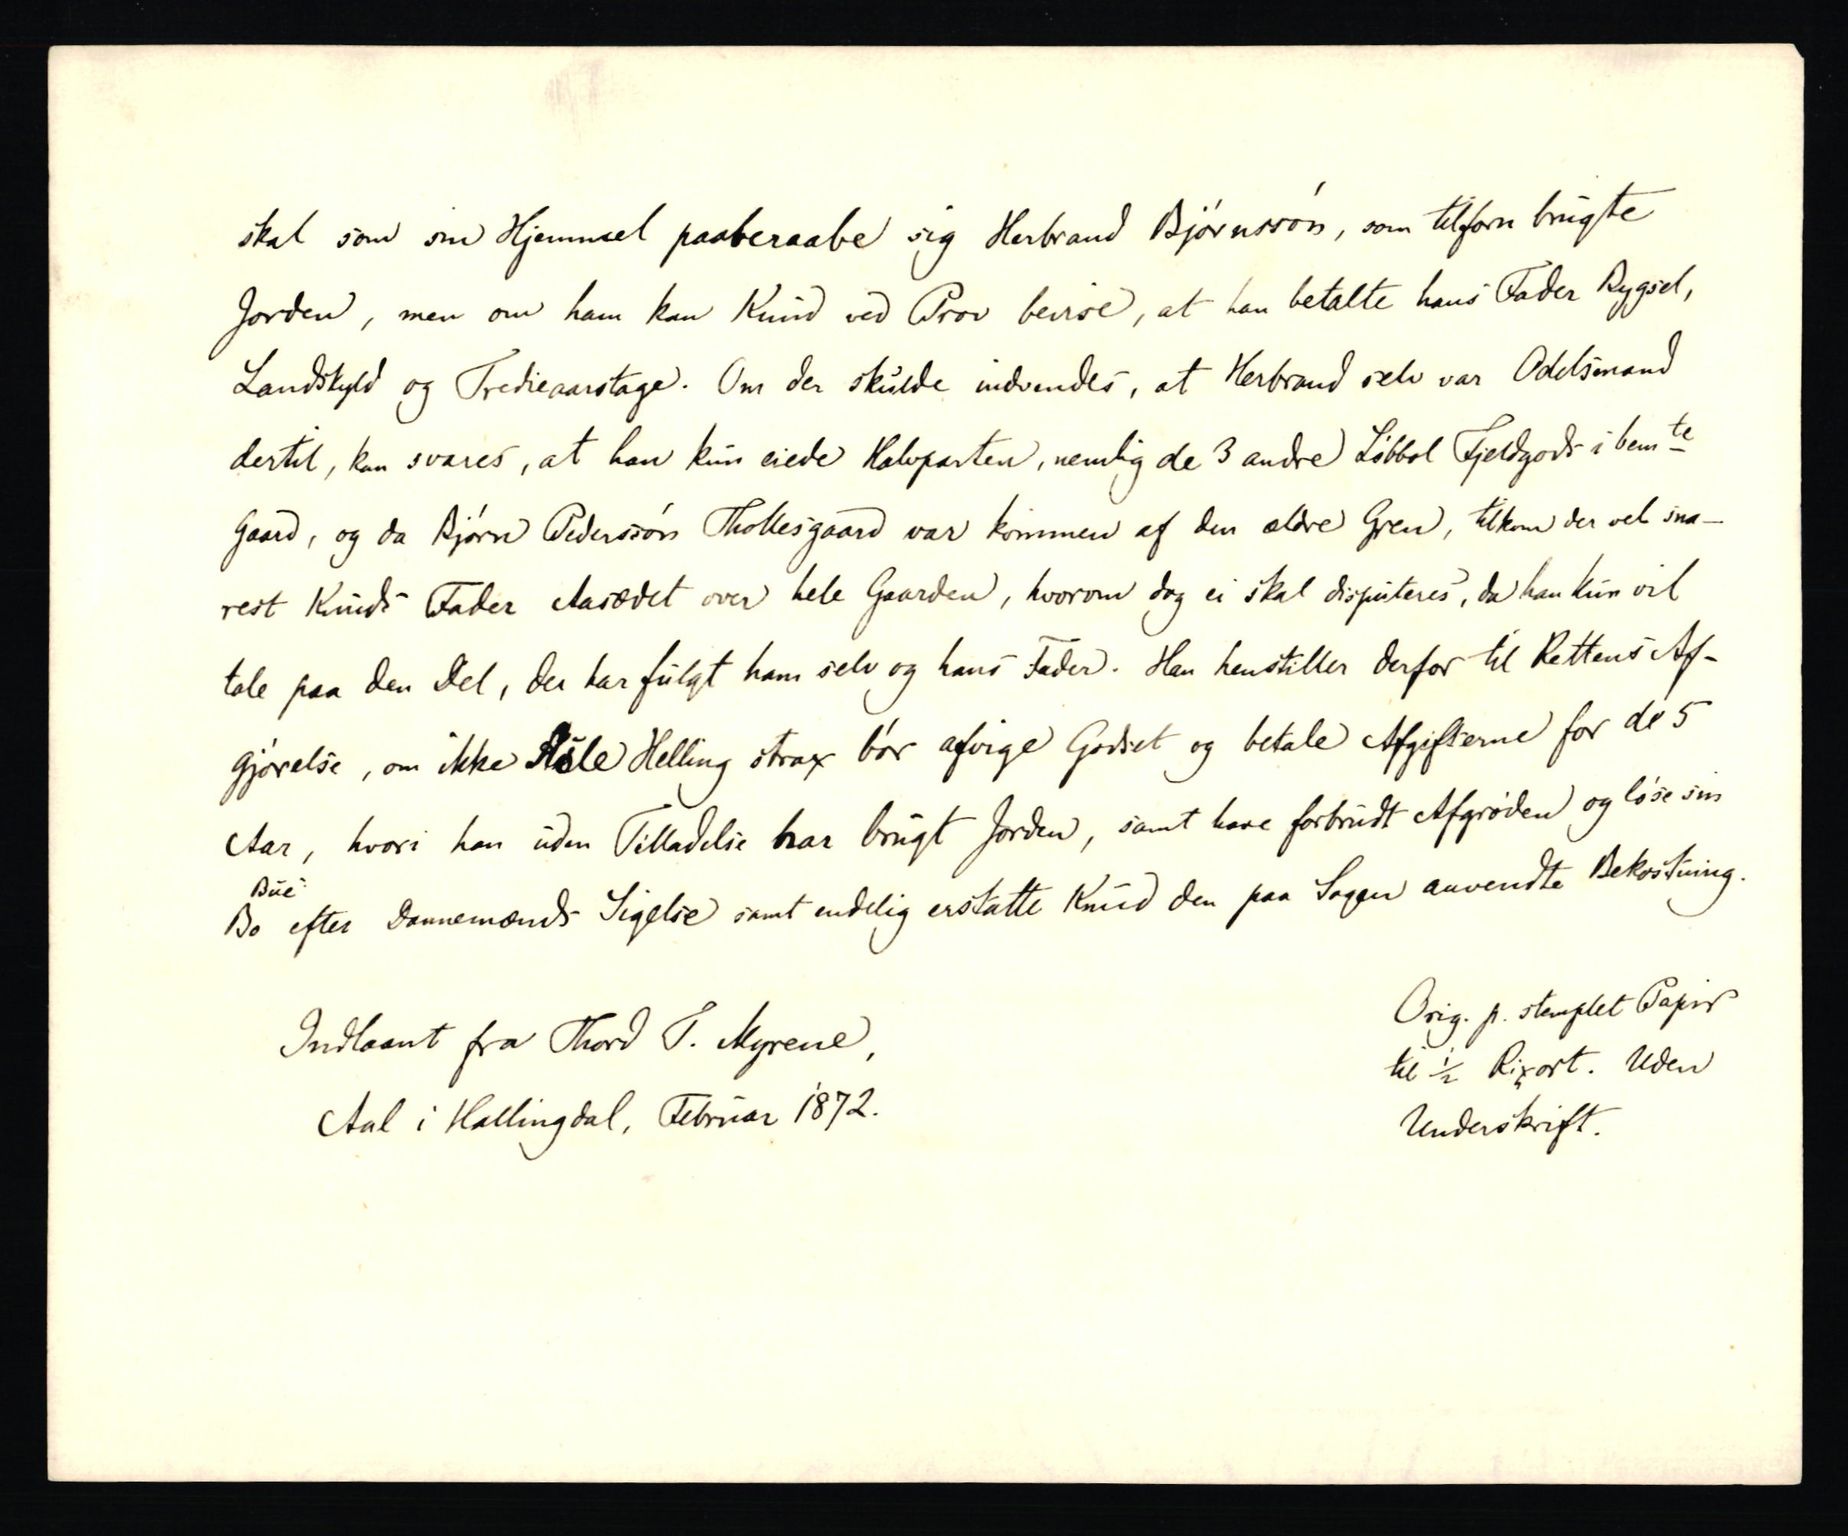 skal som sin Hjemmel paaberaabe sig Herbrand Björnssön, som tilforn brugte
Jorden, men om ham kan Knud ved Prov bevise, at han betalte hans Fader Bygsel,
Landskyld og Tredieaarstage. Om der skulde indvendes, at Herbrand selv var Odelsmand
dertil, kan svares, at han kun eiede Halvparten, nemlig de 3 andre Löbbol Fjeldgods i bemte
Gaard, og da Björn Pederssön Thollesgaard var kommen af den ældre Gren, tilkom der vel sna-
rest Knuds Fader Aasædet over hele Gaarden, hvorom dog ei skal disputeres, da han kun vil
tale paa den Del, der har fulgt ham selv og hans Fader. Han henstiller derfor til Rettens Af-
gjörelse, om ikke Asle Helling strax bör afvige Godset og betale Afgifterne for de 5
Aar, hvori han uden Tilladelse har brugt Jorden, samt have forbrudt Afgröden og löse sin
Bue
Bo efter Dannemænds Sigelse samt endelig erstatte Knud den paa Sagen anvendte Bekostning.
Indlaant fra Thord T. Myrene,
Aal i Hallingdal, Februar 1872.
Orig. p. stemplet Papir
til 1/2 Rixort. Uden
Underskrift.